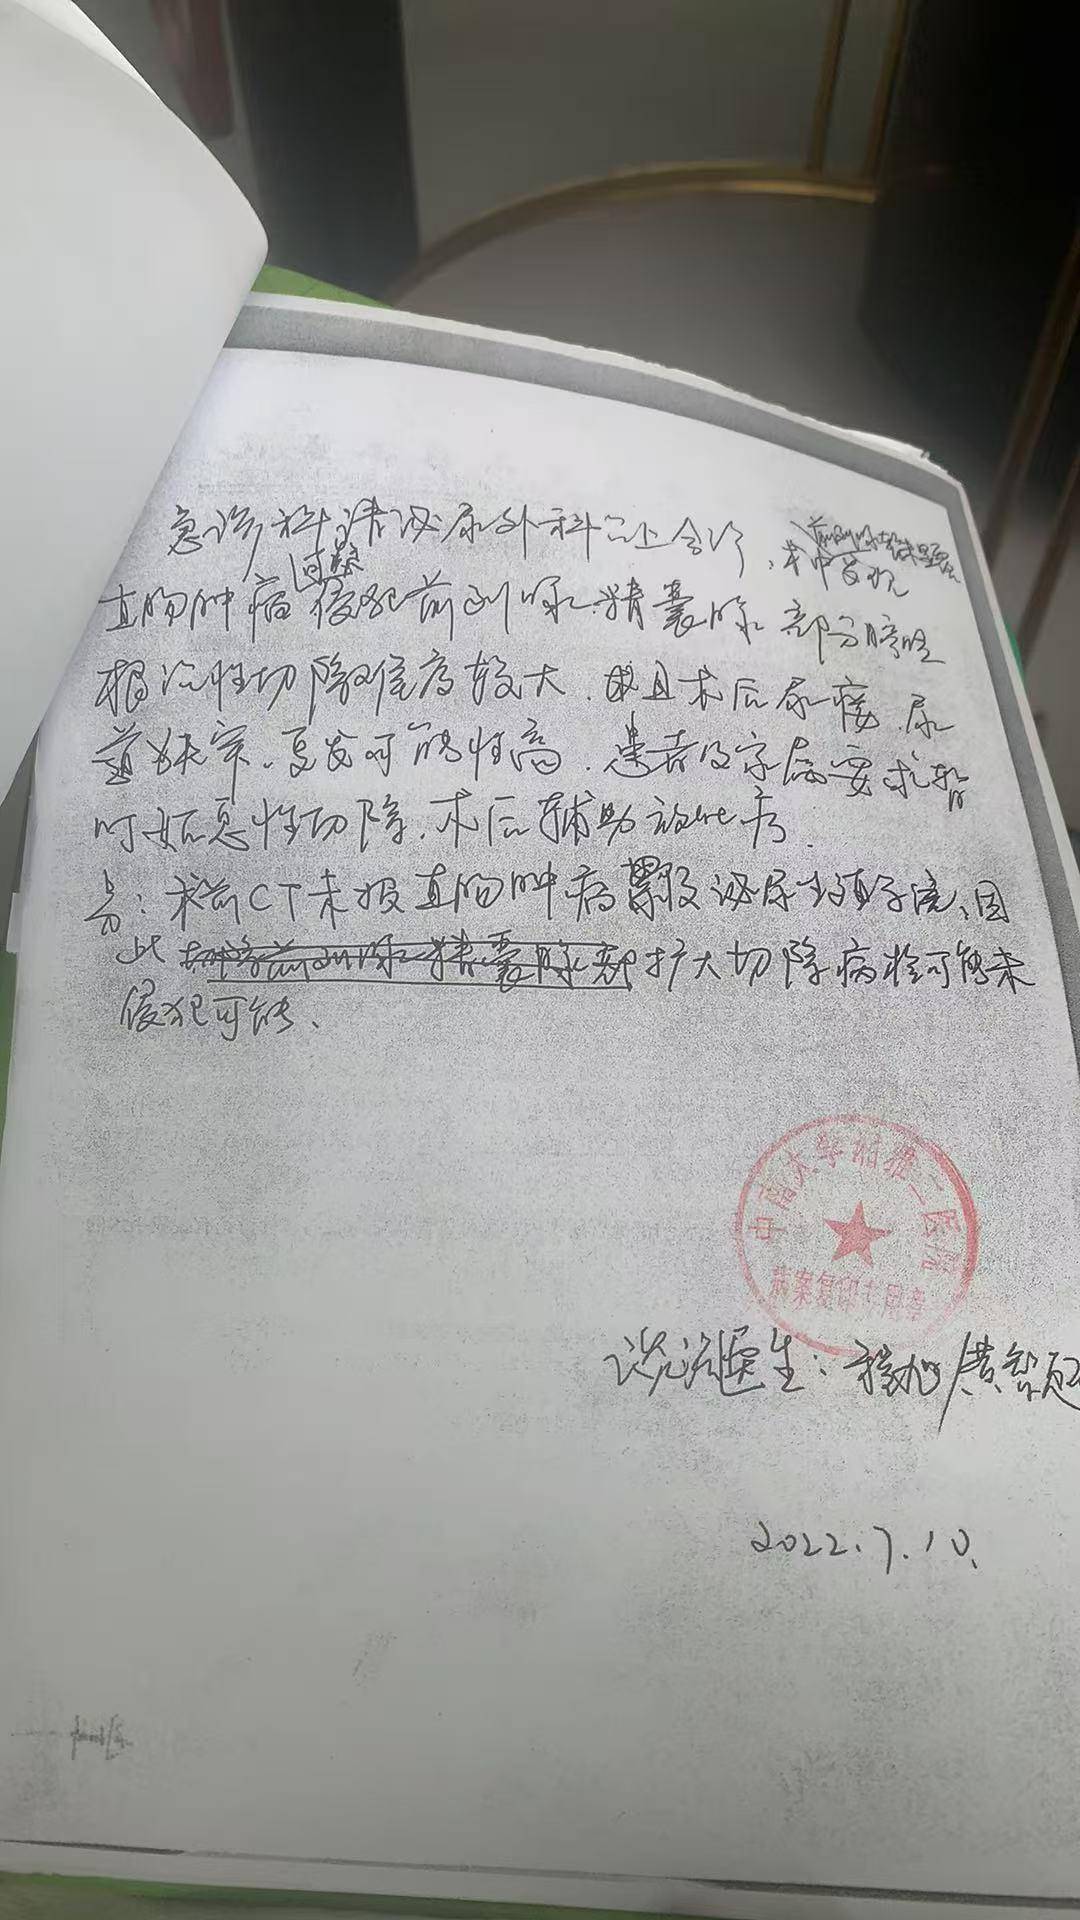 急诊科请泌尿外科台上会诊，术中发现
直肠肿瘤侵犯前列腺精囊腺部分膀胱
根治性切除难度较大，且术后尿瘘、尿
道狭窄、复发可能性高，患者及家属要求暂
时姑息性切除，术后辅助放化疗．
另：术前CT未报直肠肿瘤累及泌尿生殖系统，因
此扩大切除病检可能未
侵犯可能、
中南大学湘雅二医院
病案复印专用章
谈话医生：
2022.7.10.